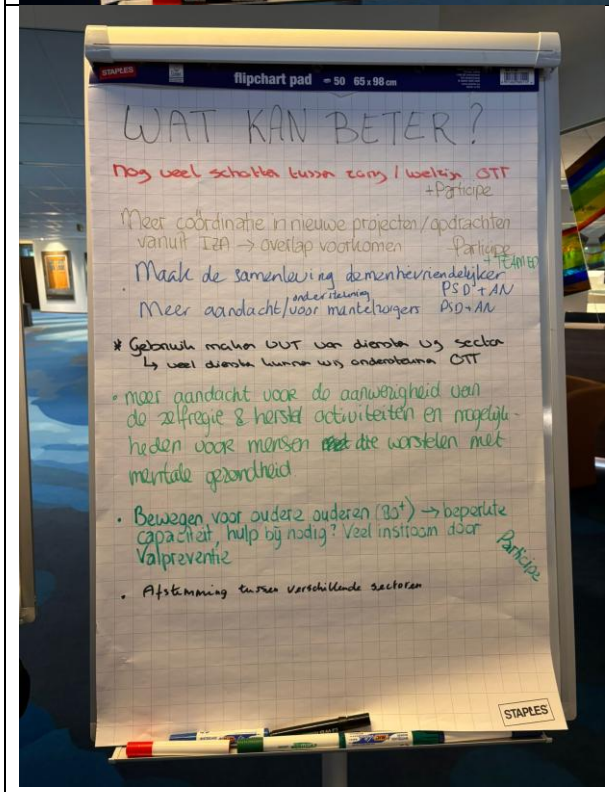 STAPLES
flipchart pad = 50 65 x 98 cm
WAT KAN BETER?
nog veel schotten tussen zorg / welzijn OTT
+Participe
Meer coördinatie in nieuwe projecten/opdrachten
vanuit IZA → overlap voorkomen Participe
+ TEAMED
. Maak de samenleving dementievriendelijker
PSD + AN
ondersteuning
Meer aandacht/voor mantelzorgers PSD+AN
* Gebruik maken van diensten sector
↳ veel diensten kunnen wij ondersteunen OTT
• meer aandacht voor de aanwezigheid van
de zelfregie & herstel activiteiten en mogelijk-
heden voor mensen die worstelen met
mentale gezondheid
• Bewegen voor oudere ouderen (80+) → beperkte
capaciteit, hulp bij nodig? Veel instroom door
Valpreventie
Participe
• Afstemming tussen verschillende sectoren
STAPLES